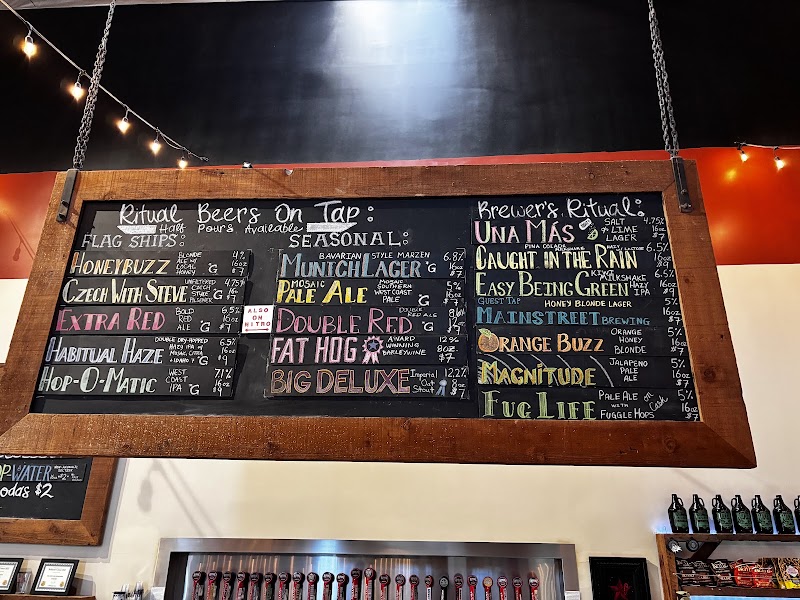 Ritual Beers On Tap:
Half Pours Available
FLAG SHIPS:
HONEYBUZZ BLONDE ALE W/ LOCAL HONEY 4% 16oz $7
CZECH WITH STEVE UNFILTERED CZECH STYLE PILSENER G 4.75% 16oz $7
EXTRA RED BOLD RED ALE G 6.5% 16oz $7
ALSO ON NITRO
HABITUAL HAZE DOUBLE DRY-HOPPED HAZY IPA W/ MOSAIC, CITRA G 6.5% 16oz
HOP-O-MATIC WEST COAST IPA G 7.1% 16oz $9
SEASONAL:
MUNICH LAGER BAVARIAN STYLE MARZEN G 6.8% 16oz $7
MOSAIC PALE ALE MOSAIC SOUTHERN WEST COAST PALE G 5% 16oz $7
DOUBLE RED DOUBLE RED ALE G
FAT HOG AWARD WINNING BARLEYWINE 12% 8oz $7
BIG DELUXE Imperial Oat Stout 12.2% 8oz $7
Brewer's Ritual:
UNA MÁS SALT & LIME LAGER 4.75% 16oz $7
CAUGHT IN THE RAIN PINA COLADA MILKSHAKE 6.5% 16oz
EASY BEING GREEN MILKSHAKE HAZY IPA 6.5% 16oz $9
GUEST TAP HONEY BLONDE LAGER 5%
MAINSTREET BREWING 16oz $7
ORANGE BUZZ ORANGE HONEY BLONDE 5% 16oz $7
MAGNITUDE JALAPENO PALE ALE 5% 16oz $7
FUG LIFE PALE ALE ON Cask WITH FUGGLE HOPS 5% 16oz $7
OP-WATER
odas $2